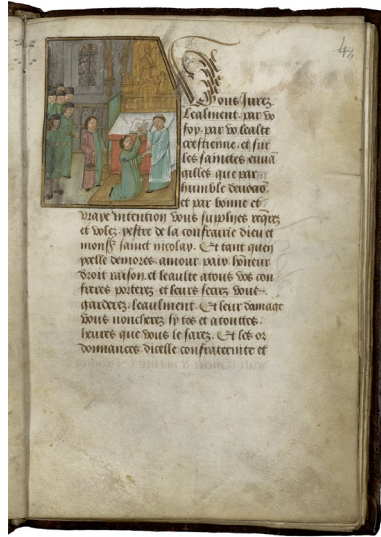 Vous Jurez
Lealment par vo
foy par vo lealte
crestienne et sur
les sainctes euuā
gilles que par
humble deuocaō
et par bonne et
vraye intention vous supplyes reqrez
et volez yestre de la confrairie dieu et
monsr sainct nicolay. Et tant quen
ycelle demores amour paix honeur
droit raison et leaulte a tous vos con
freres porterez et leurs secrez vous
garderez leaulment. Et leur damage
vous noncherez sy tos et a touttes
heures que vous le sarez. Et les or
donnances dicelle confraternite et